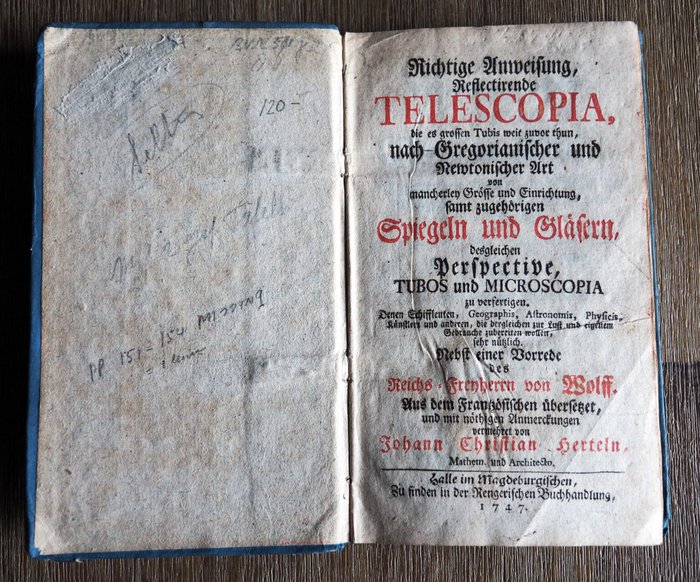 120-
pp 151-154 missing
Richtige Anweisung,
Reflectirende
TELESCOPIA,
die es grossen Tubis weit zuvor thun,
nach Gregorianischer und
Newtonischer Art
von
mancherley Grösse und Einrichtung,
samt zugehörigen
Spiegeln und Gläsern,
desgleichen
Perspective,
TUBOS und MICROSCOPIA
zu verfertigen.
Denen Schiffleuten, Geographis, Astronomis, Physicis,
Künstlern und anderen, die dergleichen zur Lust und eigenem
Gebrauche zubereiten wollen,
sehr nützlich.
Nebst einer Vorrede
des
Reichs-Freyherrn von Wolff.
Aus dem Frantzösischen übersetzet,
und mit nöthigen Anmerckungen
vermehret von
Johann Christian Herteln,
Mathem. und Architecto.
Halle im Magdeburgischen,
Zu finden in der Rengerischen Buchhandlung,
1747.